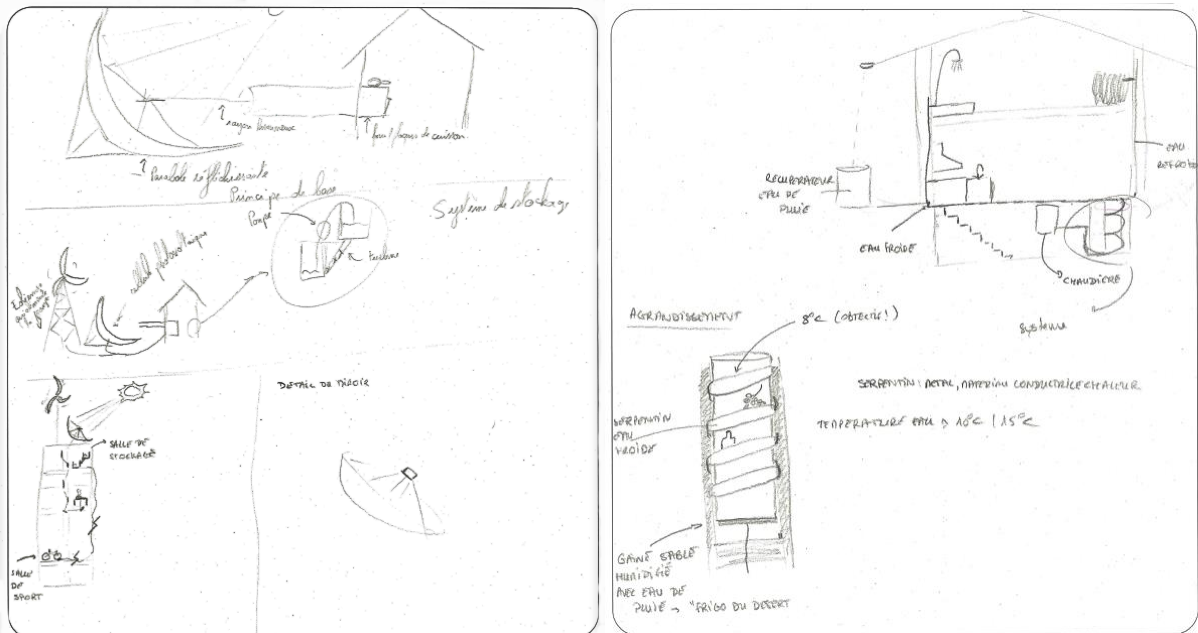 rayon lumineux
four / façons de cuisson
Parabole réfléchissante
Principe de base
Système de stockage
Pompe
cellule photovoltaïque
DETAIL DU MIROIR
SALLE DE
STOCKAGE
SALLE
DE
SPORT
RECUPERATEUR
EAU DE
PLUIE
EAU
EAU FROIDE
CHAUDIÈRE
Système
AGRANDISSEMENT
8°C (OBJECTIF!)
SERPENTIN
EAU
FROIDE
SERPENTIN : METAL, MATERIAU CONDUCTRICE CHALEUR
TEMPERATURE EAU → 10°C / 15°C
GAINE SABLE
HUMIDIFIÉ
AVEC EAU DE
PLUIE → "FRIGO DU DESERT